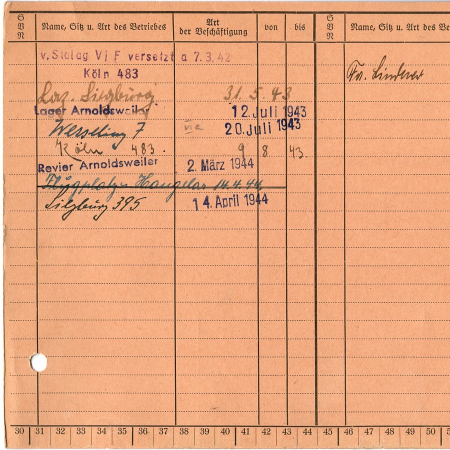 SBN Name, Sitz u. Art des Betriebes Art der Beschäftigung von bis SBN Name, Sitz u. Art des Be
v. Stalag VI F versetzt a 7.3.42
Köln 483
Laz. Siegburg 31.5.43
Lager Arnoldsweiler 12. Juli 1943
Wesseling 7 20. Juli 1943
Köln 483. 9 8 43.
Revier Arnoldsweiler 2. März 1944
Flugplatz Hangelar 14.4.44
Siegburg 395 14. April 1944
Fa. Linderer
30 31 32 33 34 35 36 37 38 39 40 41 42 43 44 45 46 47 48 49 50